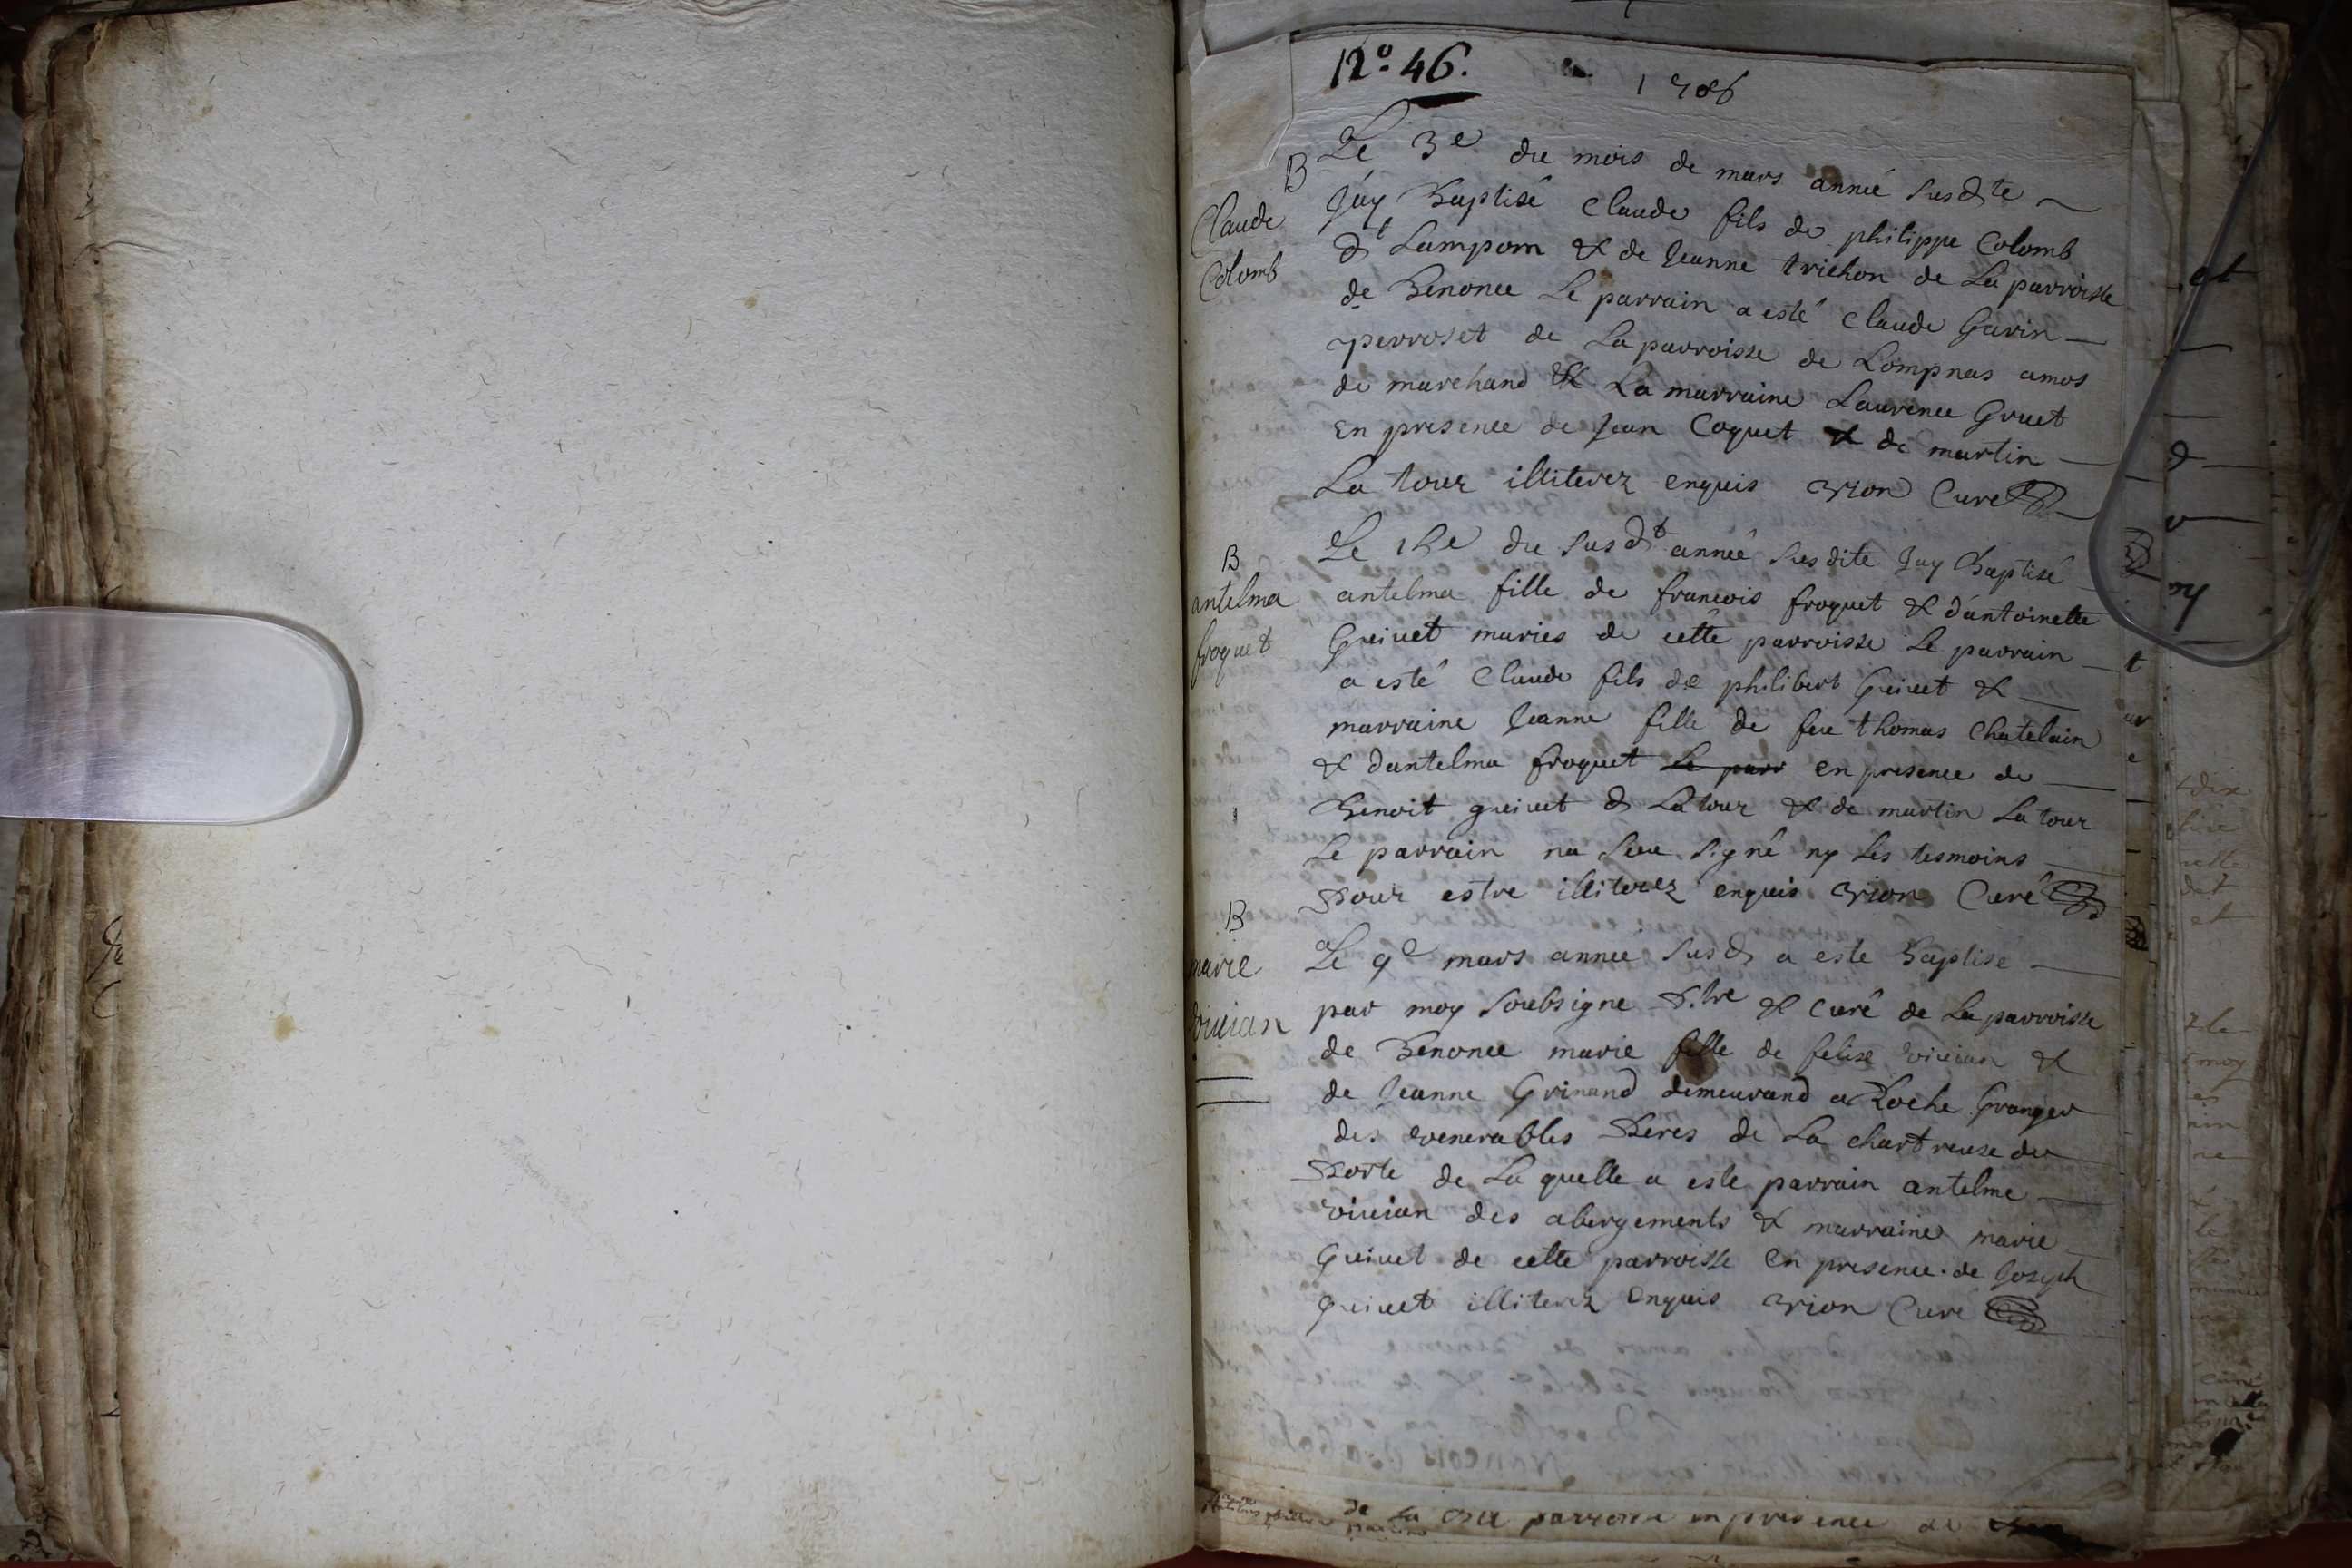 N.o 46.
1706
B
Claude
Colomb
Le 3e du mois de mars année susdte
Jay Baptisé Claude fils de philippe Colomb
dt Lampom & de Jeanne trichon de La parroisse
de Benonce Le parrain a esté Claude Gavin
perroset de La parroisse de Lompnas amos
de marchand & La marraine Laurence Gruet
En presence de Jean Coquet & de martin
La tour illiterez enquis orion Curé
B
antelma
froquet
Le 15e du susdt année susdite Jay Baptisé
antelma fille de francois froquet & d'antoinette
Greiuet maries de cette parroisse Le parrain
a esté Claude fils de philibert Greiuet &
marraine Jeanne fille de feu thomas Chatelain
& dantelma froquet Le parr en presence de
Benoit greiuet d Latour & de martin La tour
Le parrain na sceu signé ny les tesmoins
Pour estre illiterez enquis orion Curé
B
marie
viuian
Le 9e mars année susd a este Baptisé
par moy soubsigne P.tre & curé de La parroisse
de Benonce marie fille de felixe viuian &
de Jeanne Grinand demeurand a Roche Granger
des venerables Peres de La chartreuse de
Porte de La quelle a este parrain antelme
viuian des abergements & marraine marie
Greiuet de cette parroisse En presence de Joseph
Greiuet illiterez Enquis orion Curé
de La parroisse en presence de